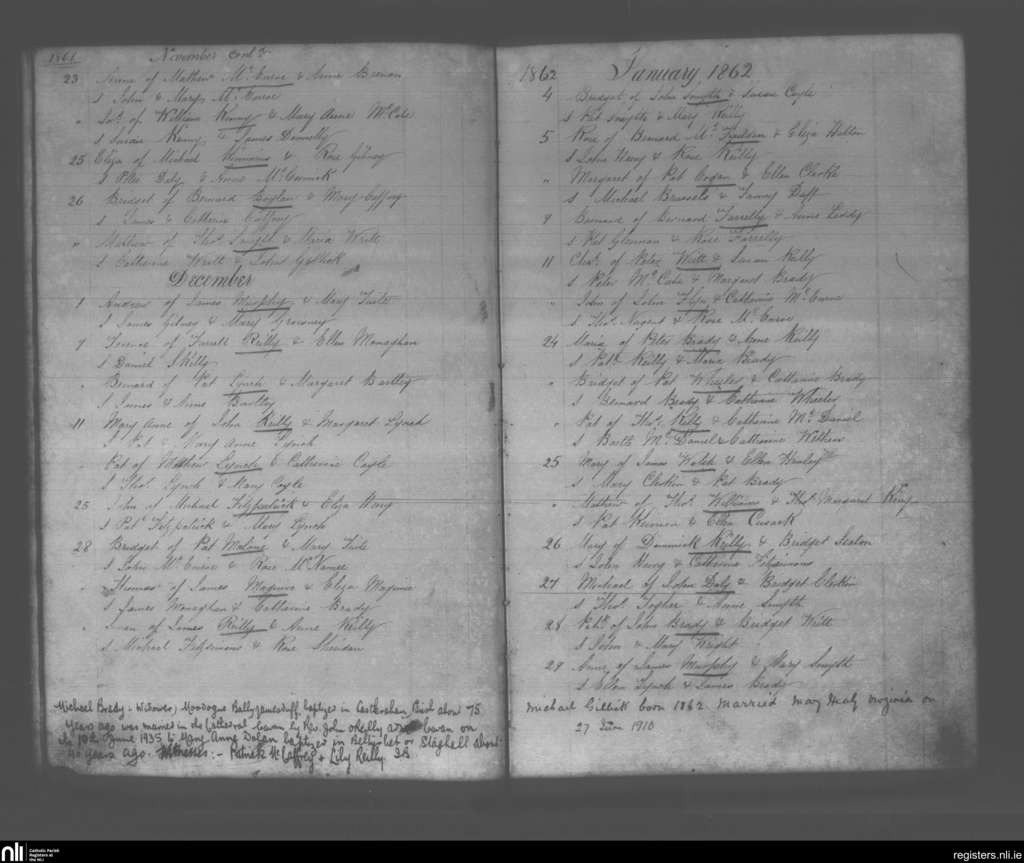 1861 November Cont'd
23 Anne of Mathew McEnroe & Anne Brenan
s John & Mary McEnroe
" of William Kenny & Mary Anne McCole
s Susan Kenny & James Donnelly
25 Eliza of Michael & Rose Gilroy
s Peter Daly & Anne McCormick
26 Bridget of Bernard Boylan & Mary Caffrey
s James & Catherine Caffrey
" Mathew of Thos Smyth & Maria Wrett
s Catherine Wrett & John Gillick
December
1 Andrew of James Murphy & Mary Tuite
s James Gilroy & Mary
7 Terence of Farrell Reilly & Ellen Monaghan
s Daniel Skelly
" Bernard of Pat Lynch & Margaret Bartley
s James & Anne Bartley
11 Mary Anne of John Reilly & Margaret Lynch
s Pat & Mary Anne Lynch
Pat of Mathew Lynch & Catherine Coyle
s Thos Lynch & Mary Coyle
25 John of Michael Fitzpatrick & Eliza
s Pat Fitzpatrick & Mary Lynch
28 Bridget of Pat Malone & Mary Tuite
s John McEnroe & Rose McNamee
" Thomas of James Maguire & Eliza Maguire
s James Monaghan & Catharine Brady
" of James Reilly & Anne Reilly
s Michael Fitzsimons & Rose Sheridan
Michael Brady - Widower, Ballyjamesduff baptized in Castlerahan Parish about 75
years ago was married in the Cathedral Cavan by Rev. John O'Reilly Cavan on
the 10th June 1935 to Mary Anne Dolan baptized in Belturbet or Staghall about
years ago. Witnesses:- Patrick McCaffrey & Lily Reilly
1862 January, 1862
4 Bridget of John Smyth & Susan Coyle
s Pat Smyth & Mary Reilly
5 Rose of Bernard & Eliza
s John & Rose Reilly
" Margaret of Pat Cogan & Ellen Clarke
s Michael & Fanny Duff
9 Bernard of Bernard Farrelly & Anne Leddy
s Pat & Rose Farrelly
11 of Peter Wrett & Susan Reilly
s Peter McCabe & Margaret Brady
" John of John Flyn & Catharine McEnroe
s Thos Nugent & Rose McEnroe
24 Maria of Peter Brady & Anne Reilly
s Patk Reilly & Maria Brady
" Bridget of Pat Wheeler & Catharine Brady
s Bernard Brady & Catharine Wheeler
" Pat of Thos & Catharine McDaniel
s Barth McDaniel & Catharine
25 Mary of James Walsh & Ellen
s Mary & Pat Brady
" Mathew of Thos Williams & Margaret King
s Pat Kiernan & Ellen Cusack
26 Mary of Dominick Reilly & Bridget Sexton
s John & Catherine Fitzsimons
27 Michael of John Daly & Bridget
s Thos & Annie Smyth
28 Patk of John Brady & Bridget Wrett
s John & Mary Wright
29 Anne of James Murphy & Mary Smyth
s Ellen Lynch & James Brady
Michael Gillick born 1862 married May Healy Virginia on
27 June 1910
nli Catholic Parish Registers at the NLI
registers.nli.ie